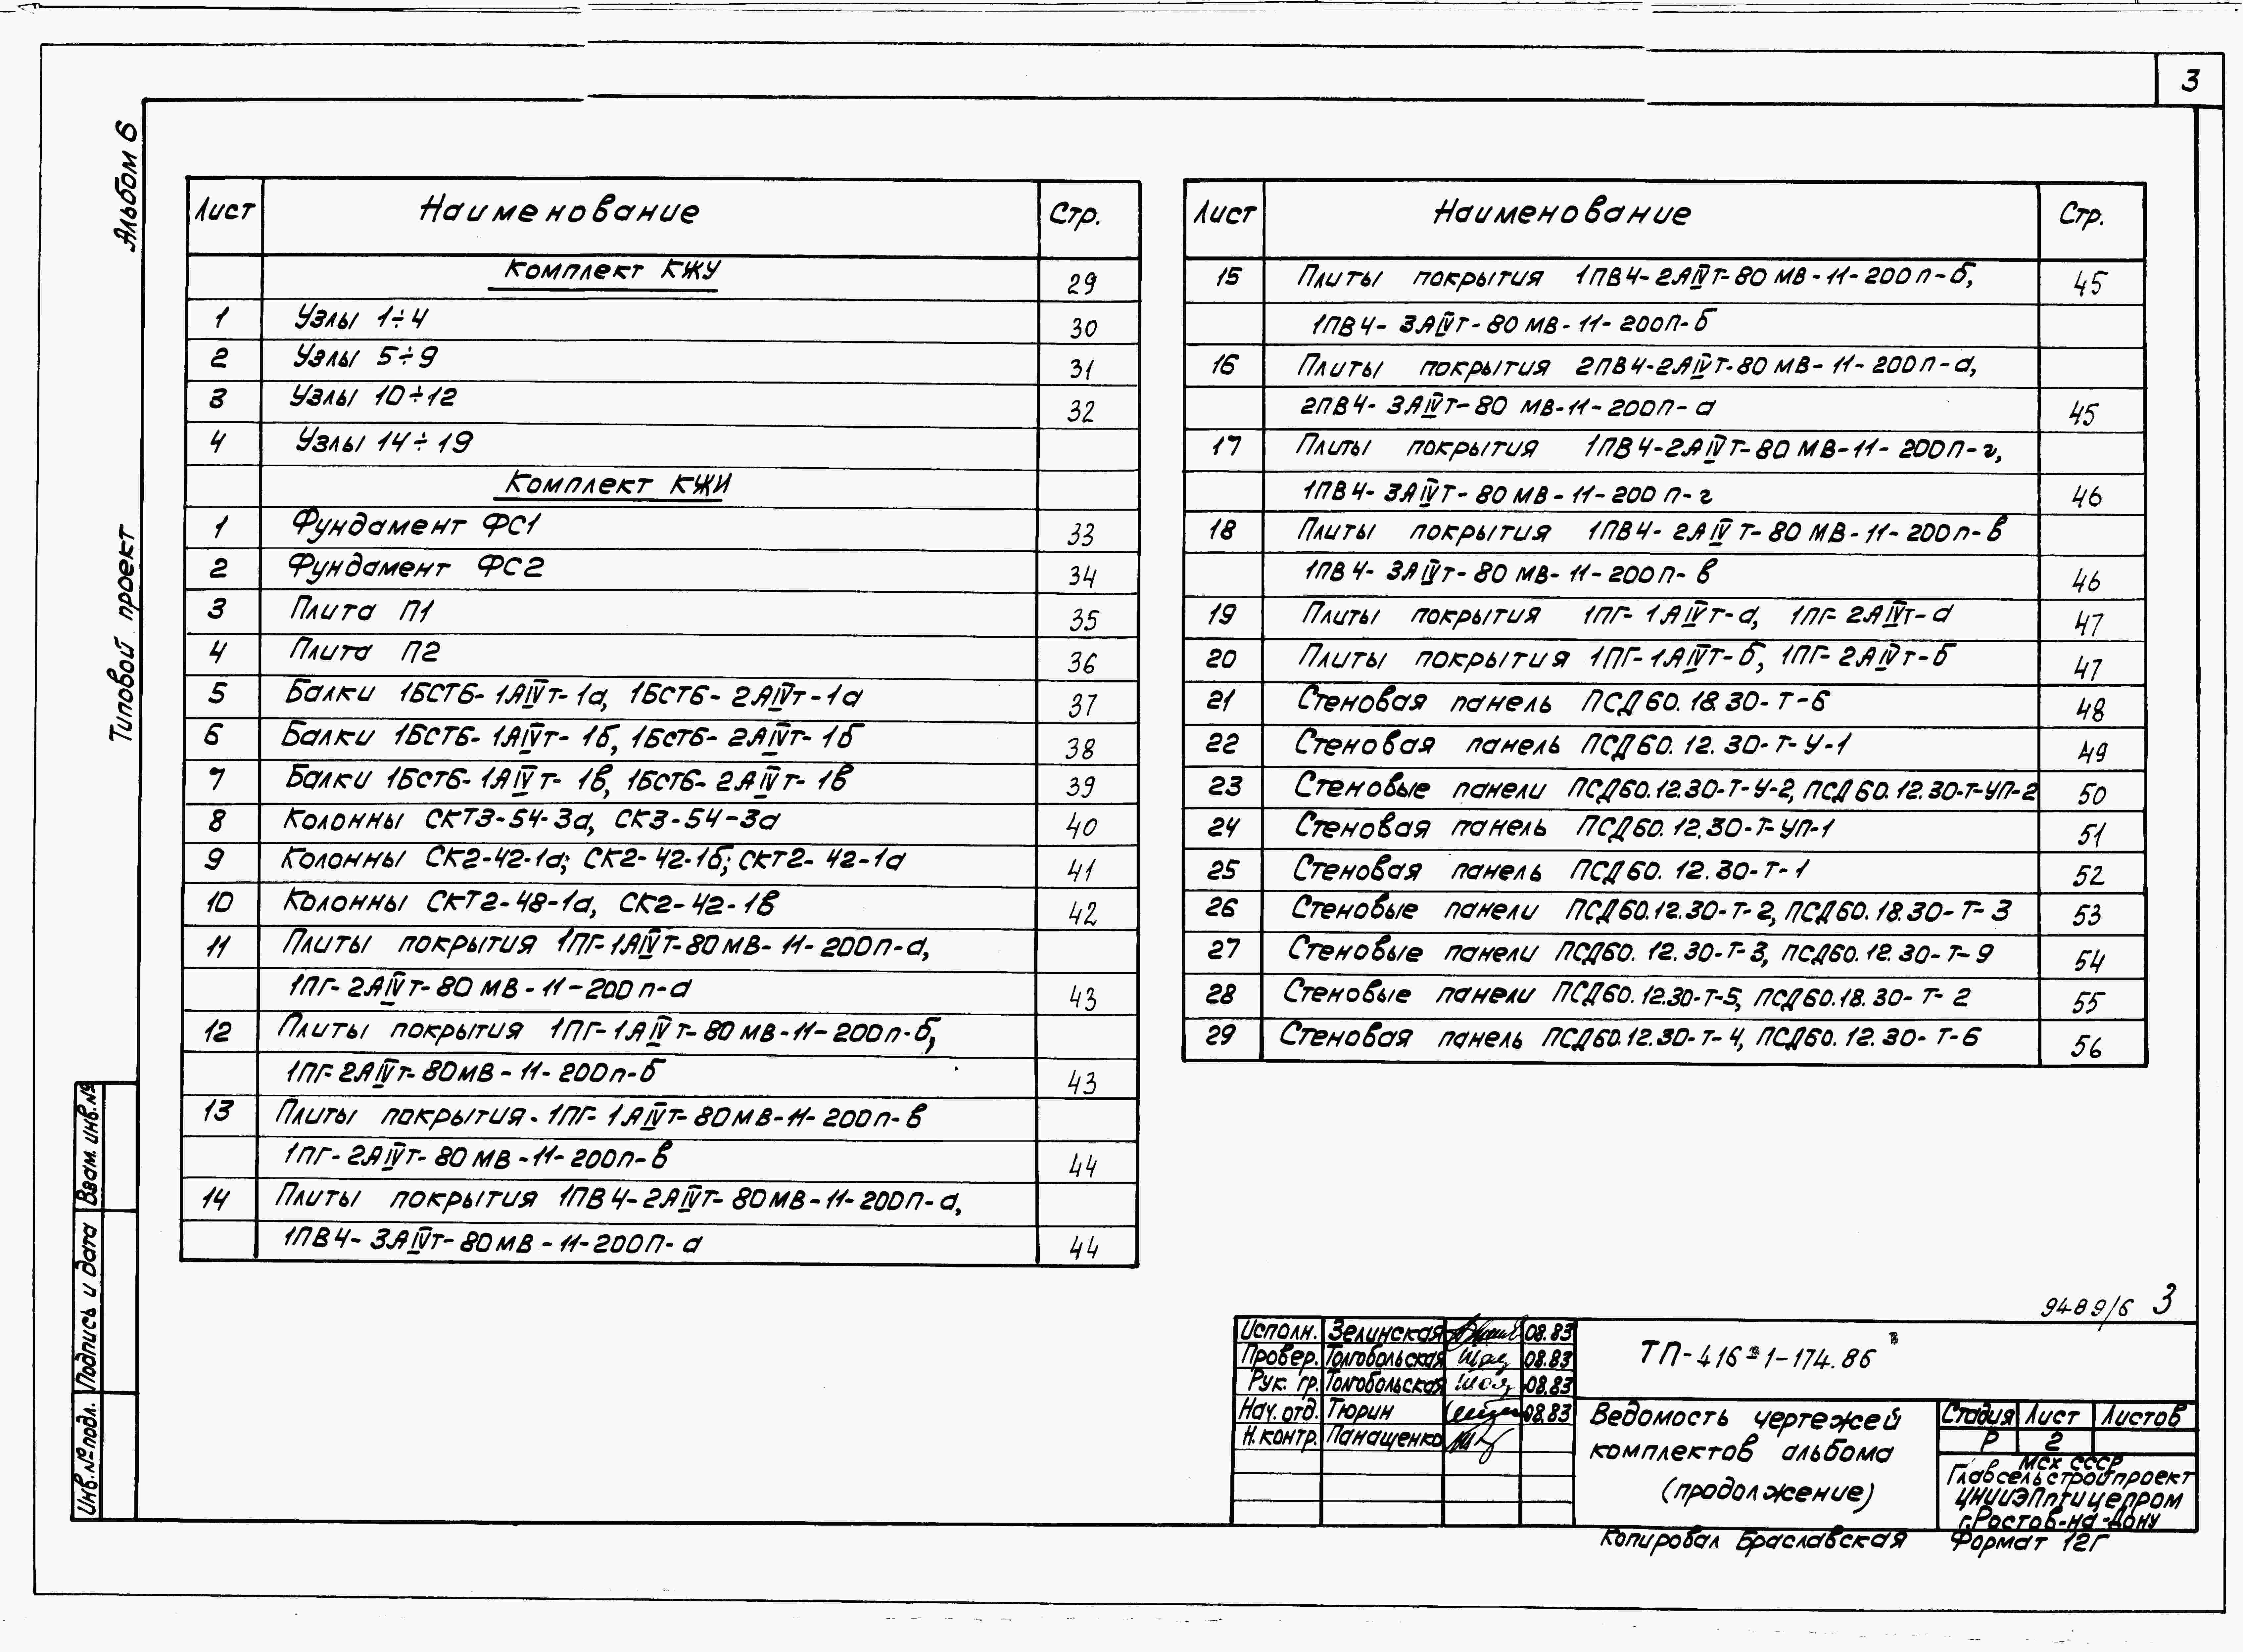 3
Альбом 6
Типовой проект
Лист Наименование Стр.
Комплект КЖУ 29
1 Узлы 1÷4 30
2 Узлы 5÷9 31
3 Узлы 10÷12 32
4 Узлы 14÷19
Комплект КЖИ
1 Фундамент ФС1 33
2 Фундамент ФС2 34
3 Плита П1 35
4 Плита П2 36
5 Балки 1БСТ6-1АIVт-1а, 1БСТ6-2АIVт-1а 37
6 Балки 1БСТ6-1АIVт-1б, 1БСТ6-2АIVт-1б 38
7 Балки 1БСТ6-1АIVт-1в, 1БСТ6-2АIVт-1в 39
8 Колонны СКТ3-54-3а, СК3-54-3а 40
9 Колонны СК2-42-1а; СК2-42-1б; СКТ2-42-1а 41
10 Колонны СКТ2-48-1а, СК2-42-1в 42
11 Плиты покрытия 1ПГ-1АIVт-80МВ-11-200п-а,
1ПГ-2АIVт-80МВ-11-200п-а 43
12 Плиты покрытия 1ПГ-1АIVт-80МВ-11-200п-б,
1ПГ-2АIVт-80МВ-11-200п-б 43
13 Плиты покрытия 1ПГ-1АIVт-80МВ-11-200п-в
1ПГ-2АIVт-80МВ-11-200п-в 44
14 Плиты покрытия 1ПВ4-2АIVт-80МВ-11-200п-а,
1ПВ4-3АIVт-80МВ-11-200п-а 44
Лист Наименование Стр.
15 Плиты покрытия 1ПВ4-2АIVт-80МВ-11-200п-б, 45
1ПВ4-3АIVт-80МВ-11-200п-б
16 Плиты покрытия 2ПВ4-2АIVт-80МВ-11-200п-а,
2ПВ4-3АIVт-80МВ-11-200п-а 45
17 Плиты покрытия 1ПВ4-2АIVт-80МВ-11-200п-г,
1ПВ4-3АIVт-80МВ-11-200п-г 46
18 Плиты покрытия 1ПВ4-2АIVт-80МВ-11-200п-в
1ПВ4-3АIVт-80МВ-11-200п-в 46
19 Плиты покрытия 1ПГ-1АIVт-а, 1ПГ-2АIVт-а 47
20 Плиты покрытия 1ПГ-1АIVт-б, 1ПГ-2АIVт-б 47
21 Стеновая панель ПСД60.18.30-Т-6 48
22 Стеновая панель ПСД60.12.30-Т-У-1 49
23 Стеновые панели ПСД60.12.30-Т-У-2, ПСД60.12.30-Т-УП-2 50
24 Стеновая панель ПСД60.12.30-Т-УП-1 51
25 Стеновая панель ПСД60.12.30-Т-1 52
26 Стеновые панели ПСД60.12.30-Т-2, ПСД60.18.30-Т-3 53
27 Стеновые панели ПСД60.12.30-Т-3, ПСД60.12.30-Т-9 54
28 Стеновые панели ПСД60.12.30-Т-5, ПСД60.18.30-Т-2 55
29 Стеновая панель ПСД60.12.30-Т-4, ПСД60.12.30-Т-6 56
Взам. инв.№
Подпись и дата
Инв.№ подл.
9489/6 3
Исполн. Зелинская 08.83
Провер. Толгобольская 08.83
Рук. гр. Толгобольская 08.83
Нач. отд. Тюрин 08.83
Н. контр. Панащенко
ТП-416-1-174.86
Ведомость чертежей
комплектов альбома
(продолжение)
Стадия Лист Листов
Р 2
МСХ СССР
Главсельстройпроект
ЦНИИЭПптицепром
г.Ростов-на-Дону
Копировал Браславская Формат 12Г